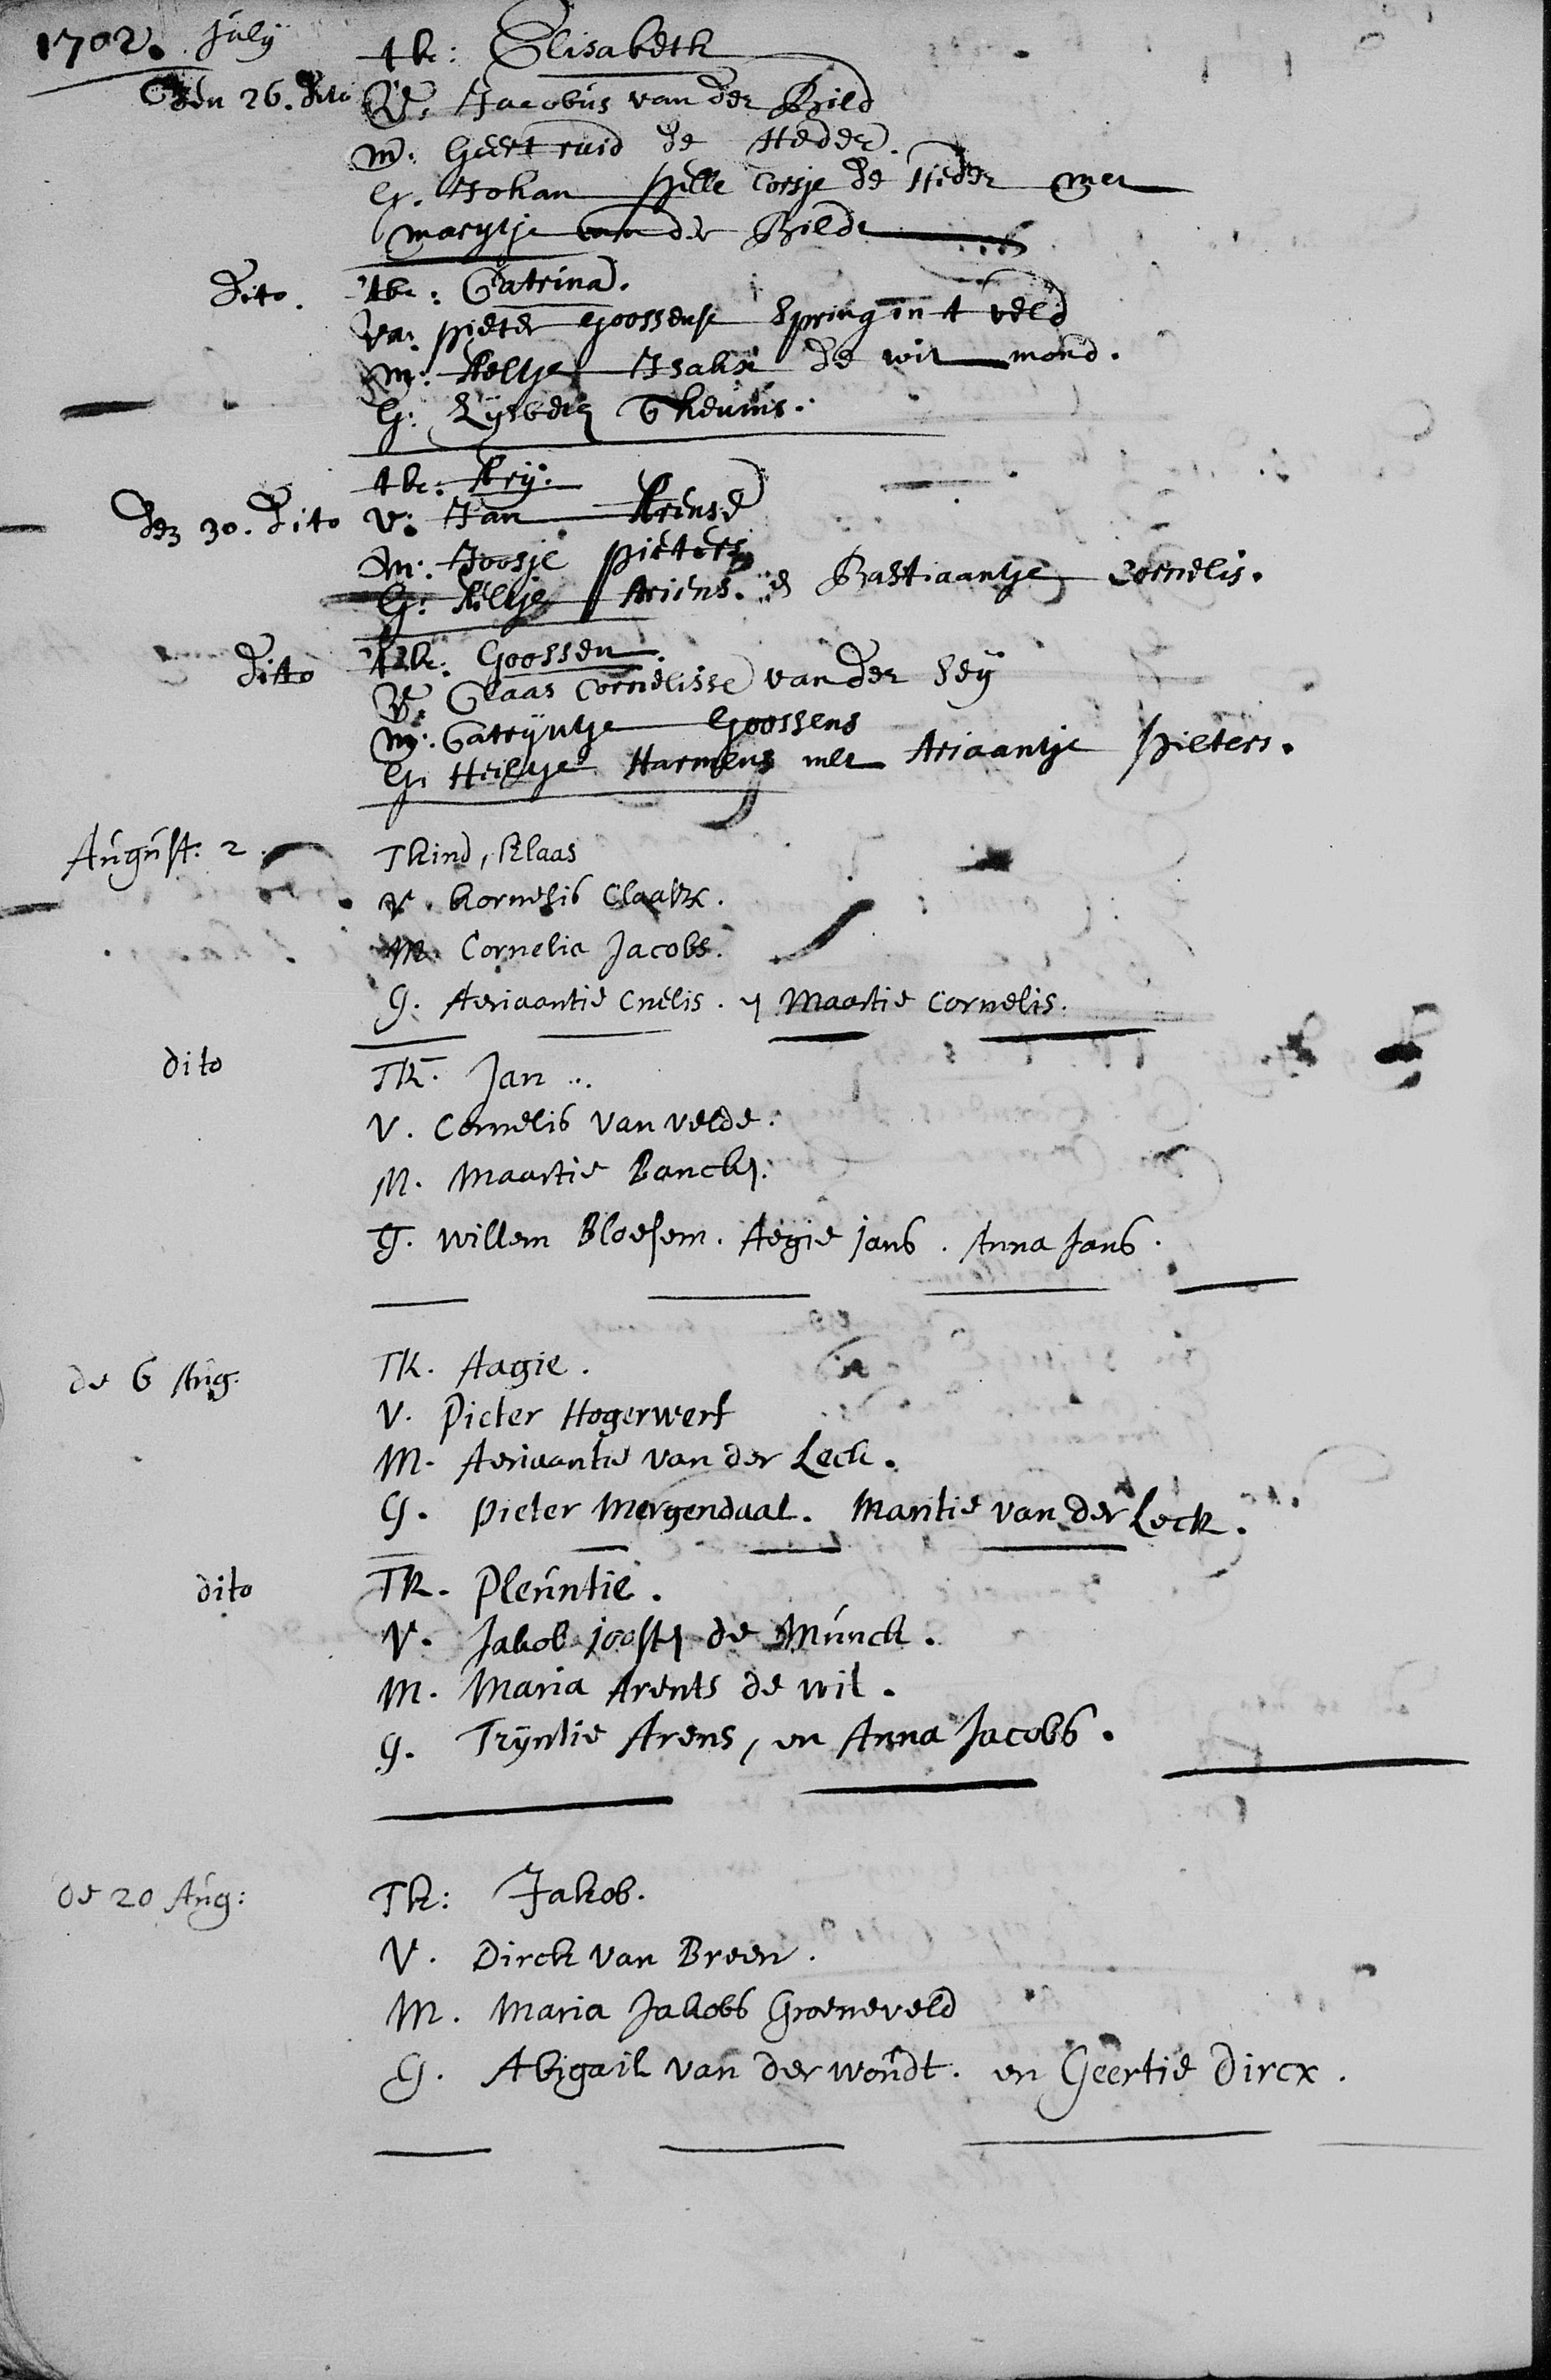 1702. July
tk: Elisabeth
den 26. dito V. Jacobus van der Bild
m: Geertruid de Heder.
G. Johan pelle Corsje de Heder met
marytje van der Bilde
dito. tk: Catrina.
va: pieter goossense Spring in t veld
m: Aeltje Isakx de wit mond.
G: Lysbeth Theunis.
tk: Ary.
den 30. dito V: Jan Ariense
m: Joosje pieters
G: Aeltje Ariens. en Bastiaantje Cornelis.
ditto tk: Goossen.
V. Claas Cornelisse van der Sey
m: Catryntje Goossens
G. Heiltje Harmens met Ariaantje pieters.
August: 2. Tkind, Klaas
V. Kornelis Claasz.
M. Cornelia Jacobs.
G. Aeriaantie Cnelis. en Maartie Cornelis.
dito TK. Jan ...
V. Cornelis van velde.
M. Maartie Bancken.
G. Willem Bloesem. Aegie jans. Anna Jans.
de 6 Aug. TK. Aagie.
V. Pieter Hogerwerf
M. Aeriaantie van der Leck.
G. Pieter Mergendaal. Mantie van der Leck.
dito TK. Pleuntie.
V. Jakob joosten de Munck.
M. Maria Arents de wit.
G. Tryntie Arens, en Anna Jacobs.
de 20 Aug: Tk: Jakob.
V. Dirck van Breen.
M. Maria Jakobs Groeneveld
G. Abigail van der woudt. en Geertie Dircx.